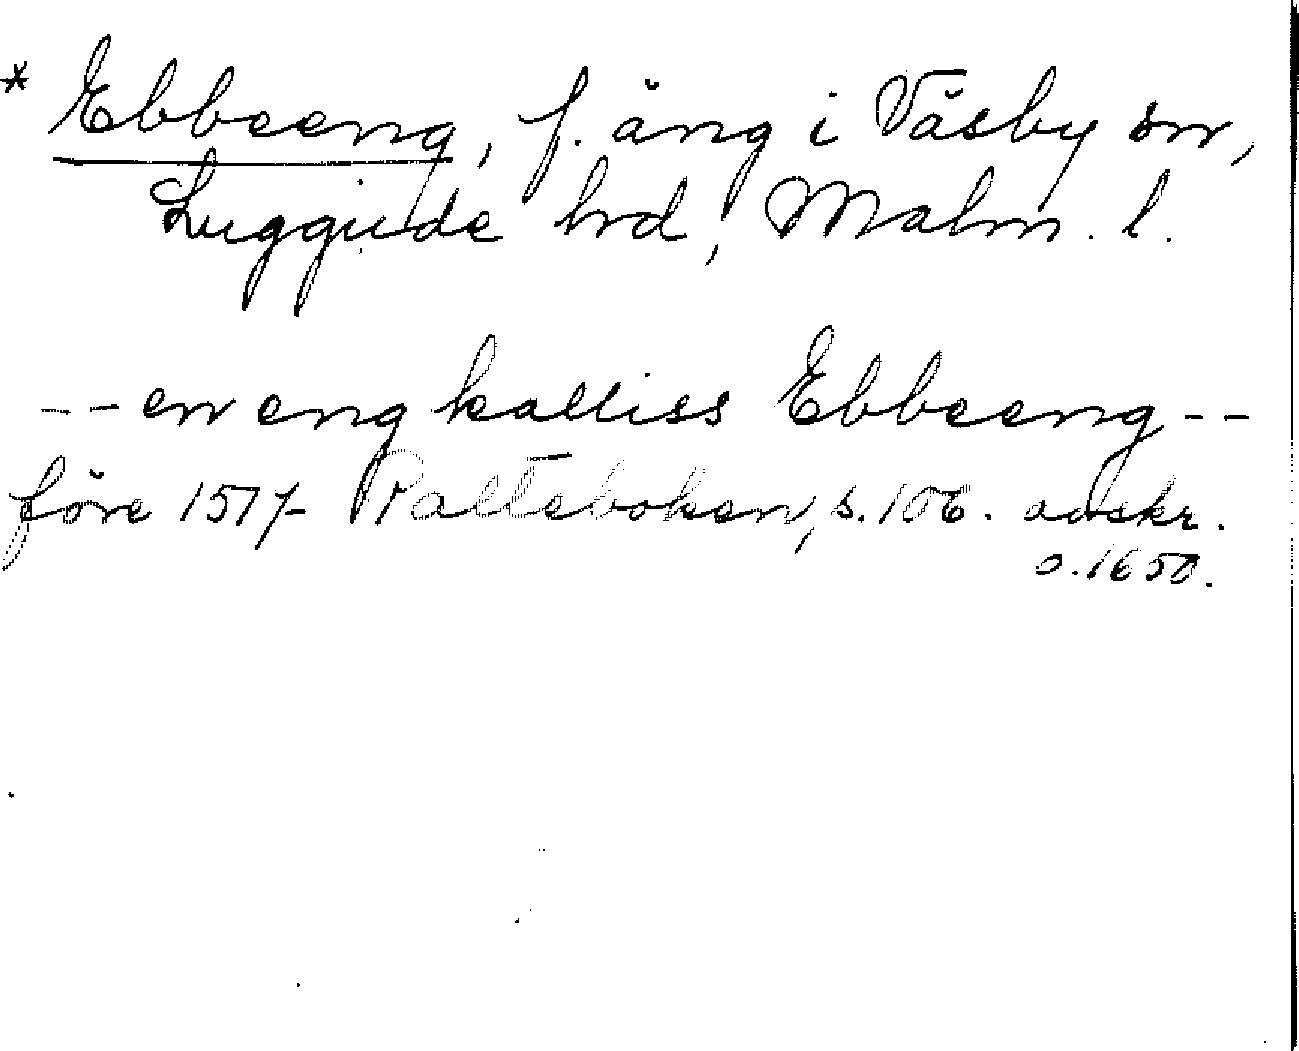 * Ebbeeng, f. äng i Väsby sn,
Luggude hrd, Malm. l.
-- en eng kalliss Ebbeeng --
före 1517 Palteboken, s. 106. avskr.
o. 1650.